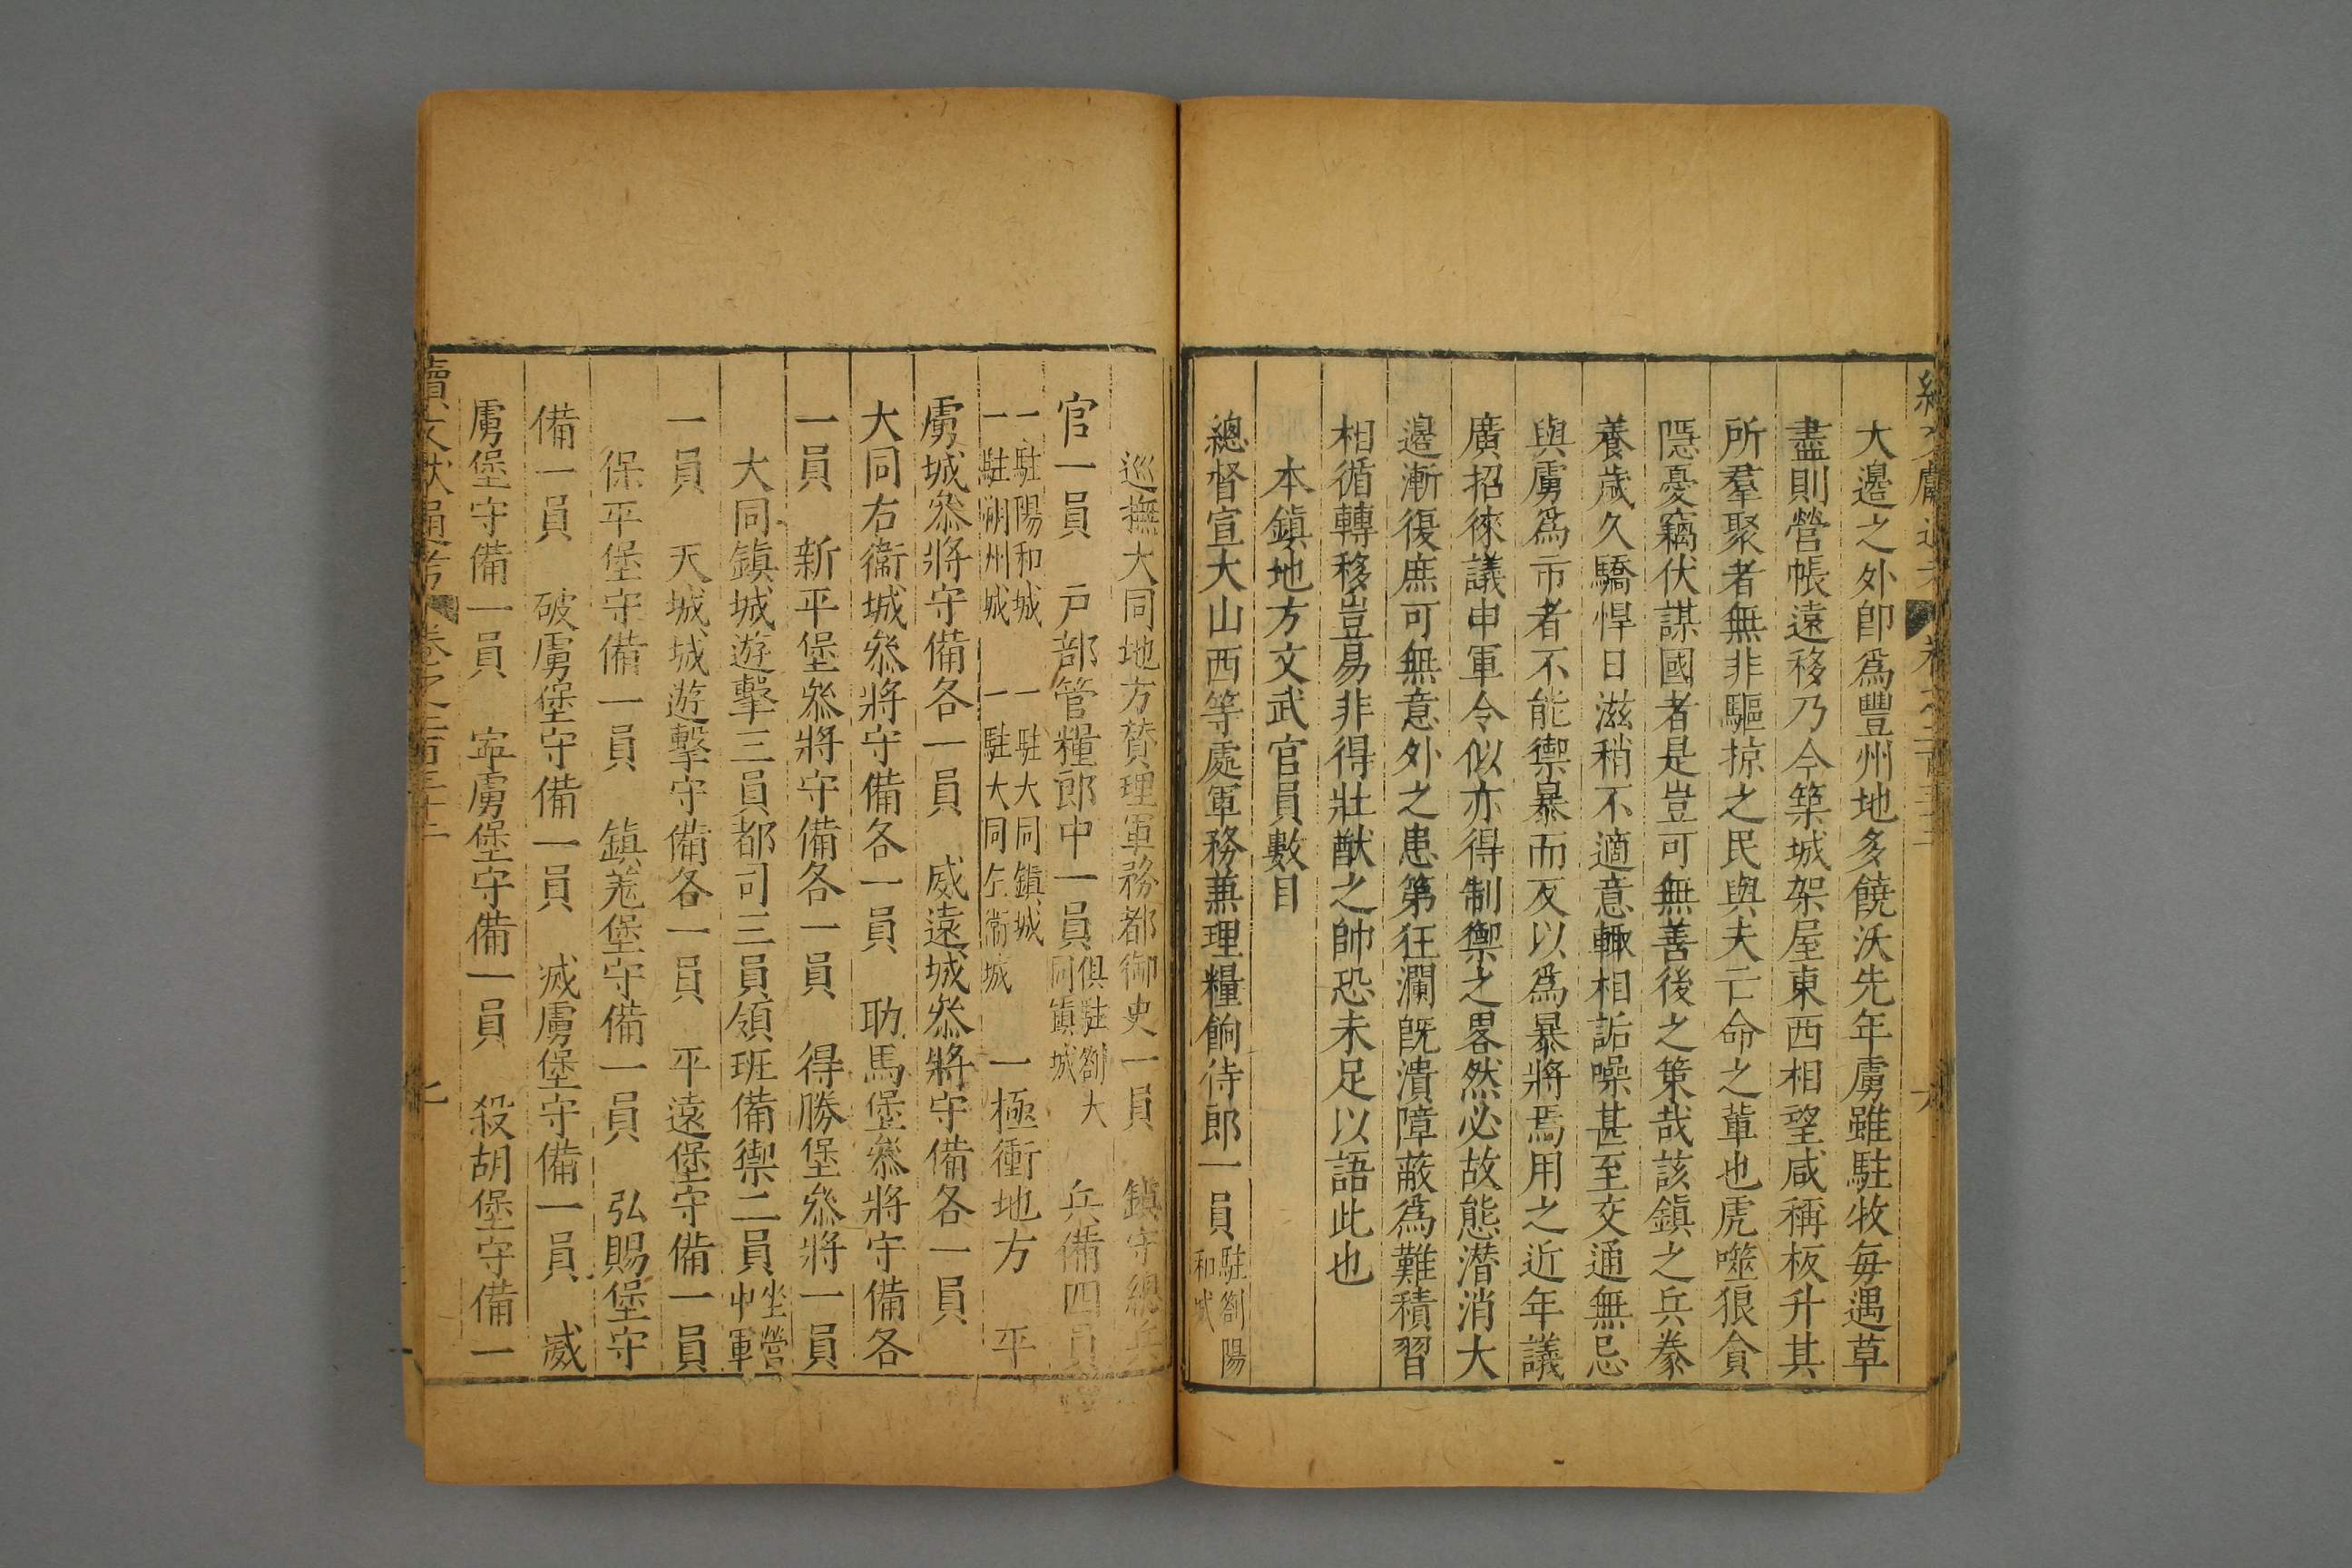 大邊之外卽爲豐州地多饒沃先年虜雖駐牧每遇草
盡則營帳遠移乃今築城架屋東西相望咸稱板升其
所羣聚者無非驅掠之民與夫亡命之輩也虎噬狼貪
隱憂竊伏謀國者是豈可無善後之策哉該鎮之兵豢
養歲久驕悍日滋稍不適意輙相詬噪甚至交通無忌
與虜爲市者不能禦暴而反以爲暴將焉用之近年議
廣招徠議申軍令似亦得制禦之畧然必故態潛消大
邊漸復庶可無意外之患第狂瀾旣潰障蔽爲難積習
相循轉移豈易非得壯猷之帥恐未足以語此也
本鎮地方文武官員數目
總督宣大山西等處軍務兼理糧餉侍郎一員駐劄陽和城
巡撫大同地方贊理軍務都御史一員 鎮守總兵
官一員 戸部管糧郎中一員俱駐劄大同鎮城 兵備四員
一駐陽和城 一駐大同鎮城 一駐朔州城 一駐大同左衞城 一極衝地方 平
虜城叅將守備各一員 威遠城叅將守備各一員
大同右衞城叅將守備各一員 助馬堡叅將守備各
一員 新平堡叅將守備各一員 得勝堡叅將一員
大同鎮城遊擊三員都司三員領班備禦二員坐營中軍
一員 天城城遊擊守備各一員 平遠堡守備一員
保平堡守備一員 鎮羌堡守備一員 弘賜堡守
備一員 破虜堡守備一員 滅虜堡守備一員 威
虜堡守備一員 寧虜堡守備一員 殺胡堡守備一
續文獻通考 卷之二百三十二 七